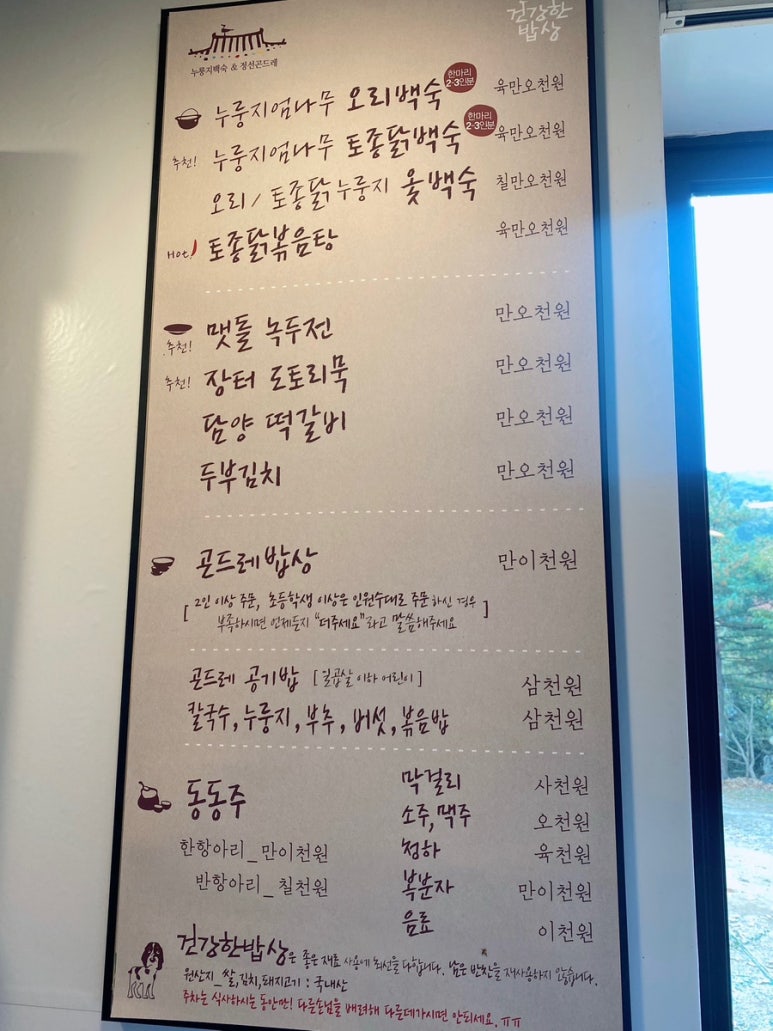 건강한
밥상
누룽지백숙 & 정선곤드레
누룽지엄나무 오리백숙 한마리 2·3인분 육만오천원
추천! 누룽지엄나무 토종닭백숙 한마리 2·3인분 육만오천원
오리 / 토종닭 누룽지 옻백숙 칠만오천원
Hot! 토종닭볶음탕 육만오천원
추천! 맷돌 녹두전 만오천원
추천! 장터 도토리묵 만오천원
담양 떡갈비 만오천원
두부김치 만오천원
곤드레밥상 만이천원
[ 2인 이상 주문, 초등학생 이상은 인원수대로 주문 하신 경우
부족하시면 언제든지 "더주세요"라고 말씀해주세요 ]
곤드레 공기밥 [ 일곱살 이하 어린이 ] 삼천원
칼국수, 누룽지, 부추, 버섯, 볶음밥 삼천원
동동주
한항아리_만이천원
반항아리_칠천원
막걸리 사천원
소주, 맥주 오천원
청하 육천원
복분자 만이천원
음료 이천원
건강한밥상은 좋은 재료 사용에 최선을 다합니다. 남은 반찬을 재사용하지 않습니다.
원산지_쌀, 김치, 돼지고기 : 국내산
주차는 식사하시는 동안만! 다른손님을 배려해 다른데가시면 안되세요. ㅠㅠ